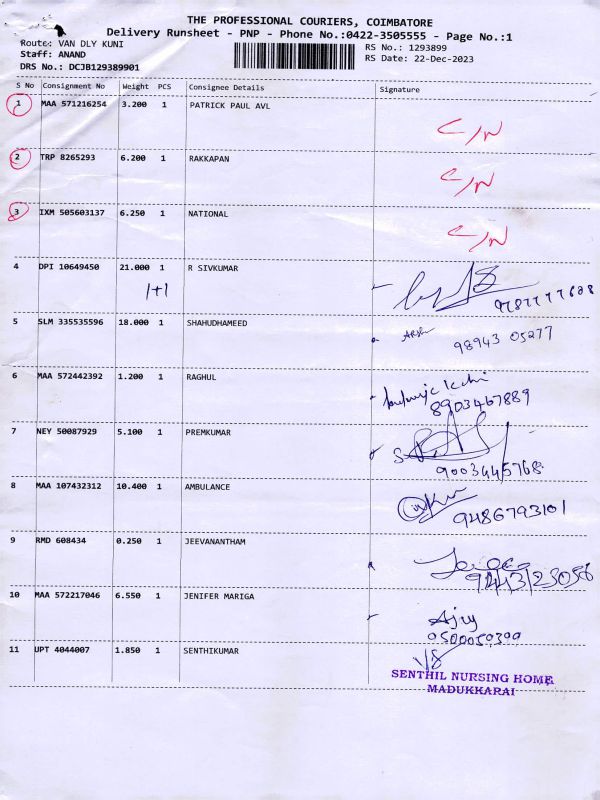 THE PROFESSIONAL COURIERS, COIMBATORE
Delivery Runsheet - PNP - Phone No.:0422-3505555 - Page No.:1
Route: VAN DLY KUNI
RS No.: 1293899
Staff: ANAND
RS Date: 22-Dec-2023
DRS No.: DCJB129389901
S No Consignment No Weight PCS Consignee Details Signature
1 MAA 571216254 3.200 1 PATRICK PAUL AVL
C/N
2 TRP 8265293 6.200 1 RAKKAPAN
C/N
3 IXM 505603137 6.250 1 NATIONAL
C/N
4 DPI 10649450 21.000 1 R SIVKUMAR
1+1
5 SLM 335535596 18.000 1 SHAHUDHAMEED
98943 05277
6 MAA 572442392 1.200 1 RAGHUL
8903467889
7 NEY 50087929 5.100 1 PREMKUMAR
9003445768
8 MAA 107432312 10.400 1 AMBULANCE
9486793101
9 RMD 608434 0.250 1 JEEVANANTHAM
10 MAA 572217046 6.550 1 JENIFER MARIGA
Ajay
11 UPT 4044007 1.850 1 SENTHIKUMAR
SENTHIL NURSING HOME
MADUKKARAI